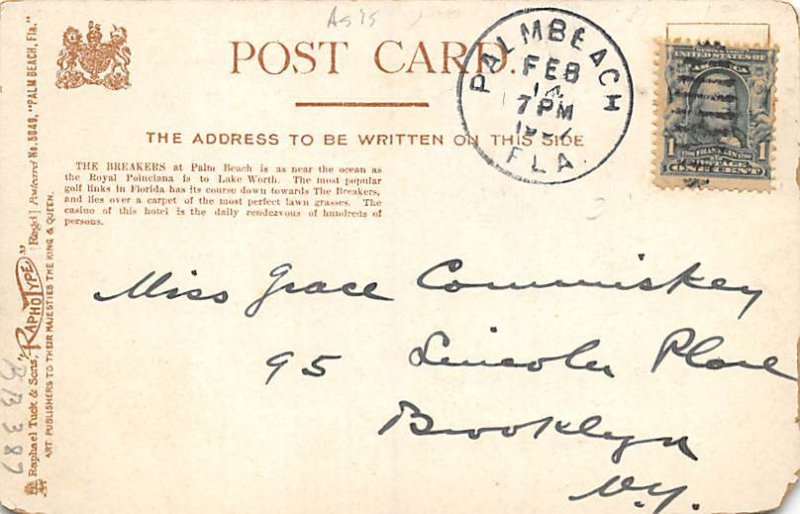 As is
POST CARD.
PALM BEACH
FEB
14
7 PM
FLA
1
FRANKLIN
ONE CENT
THE ADDRESS TO BE WRITTEN ON THIS SIDE
THE BREAKERS at Palm Beach is as near the ocean as
the Royal Poinciana is to Lake Worth. The most popular
golf links in Florida has its course down towards The Breakers,
and lies over a carpet of the most perfect lawn grasses. The
casino of this hotel is the daily rendezvous of hundreds of
persons.
Miss Grace Commiskey
95 Lincoln Place
Brooklyn
N.Y.
Raphael Tuck & Sons, "RAPHOTYPE" [Regd] Postcard No. 5049, "PALM BEACH, Fla."
ART PUBLISHERS TO THEIR MAJESTIES THE KING & QUEEN.
B B 387